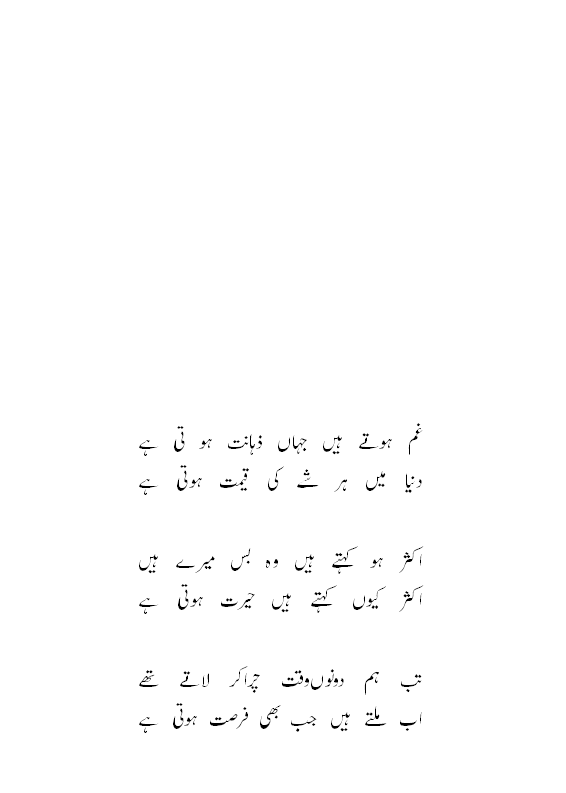 غم ہوتے ہیں جہاں ذہانت ہو تی ہے
دنیا میں ہر شے کی قیمت ہوتی ہے
اکثر ہو کہتے ہیں وہ بس میرے ہیں
اکثر کیوں کہتے ہیں حیرت ہوتی ہے
تب ہم دونوں وقت چرا کر لاتے تھے
اب ملتے ہیں جب بھی فرصت ہوتی ہے